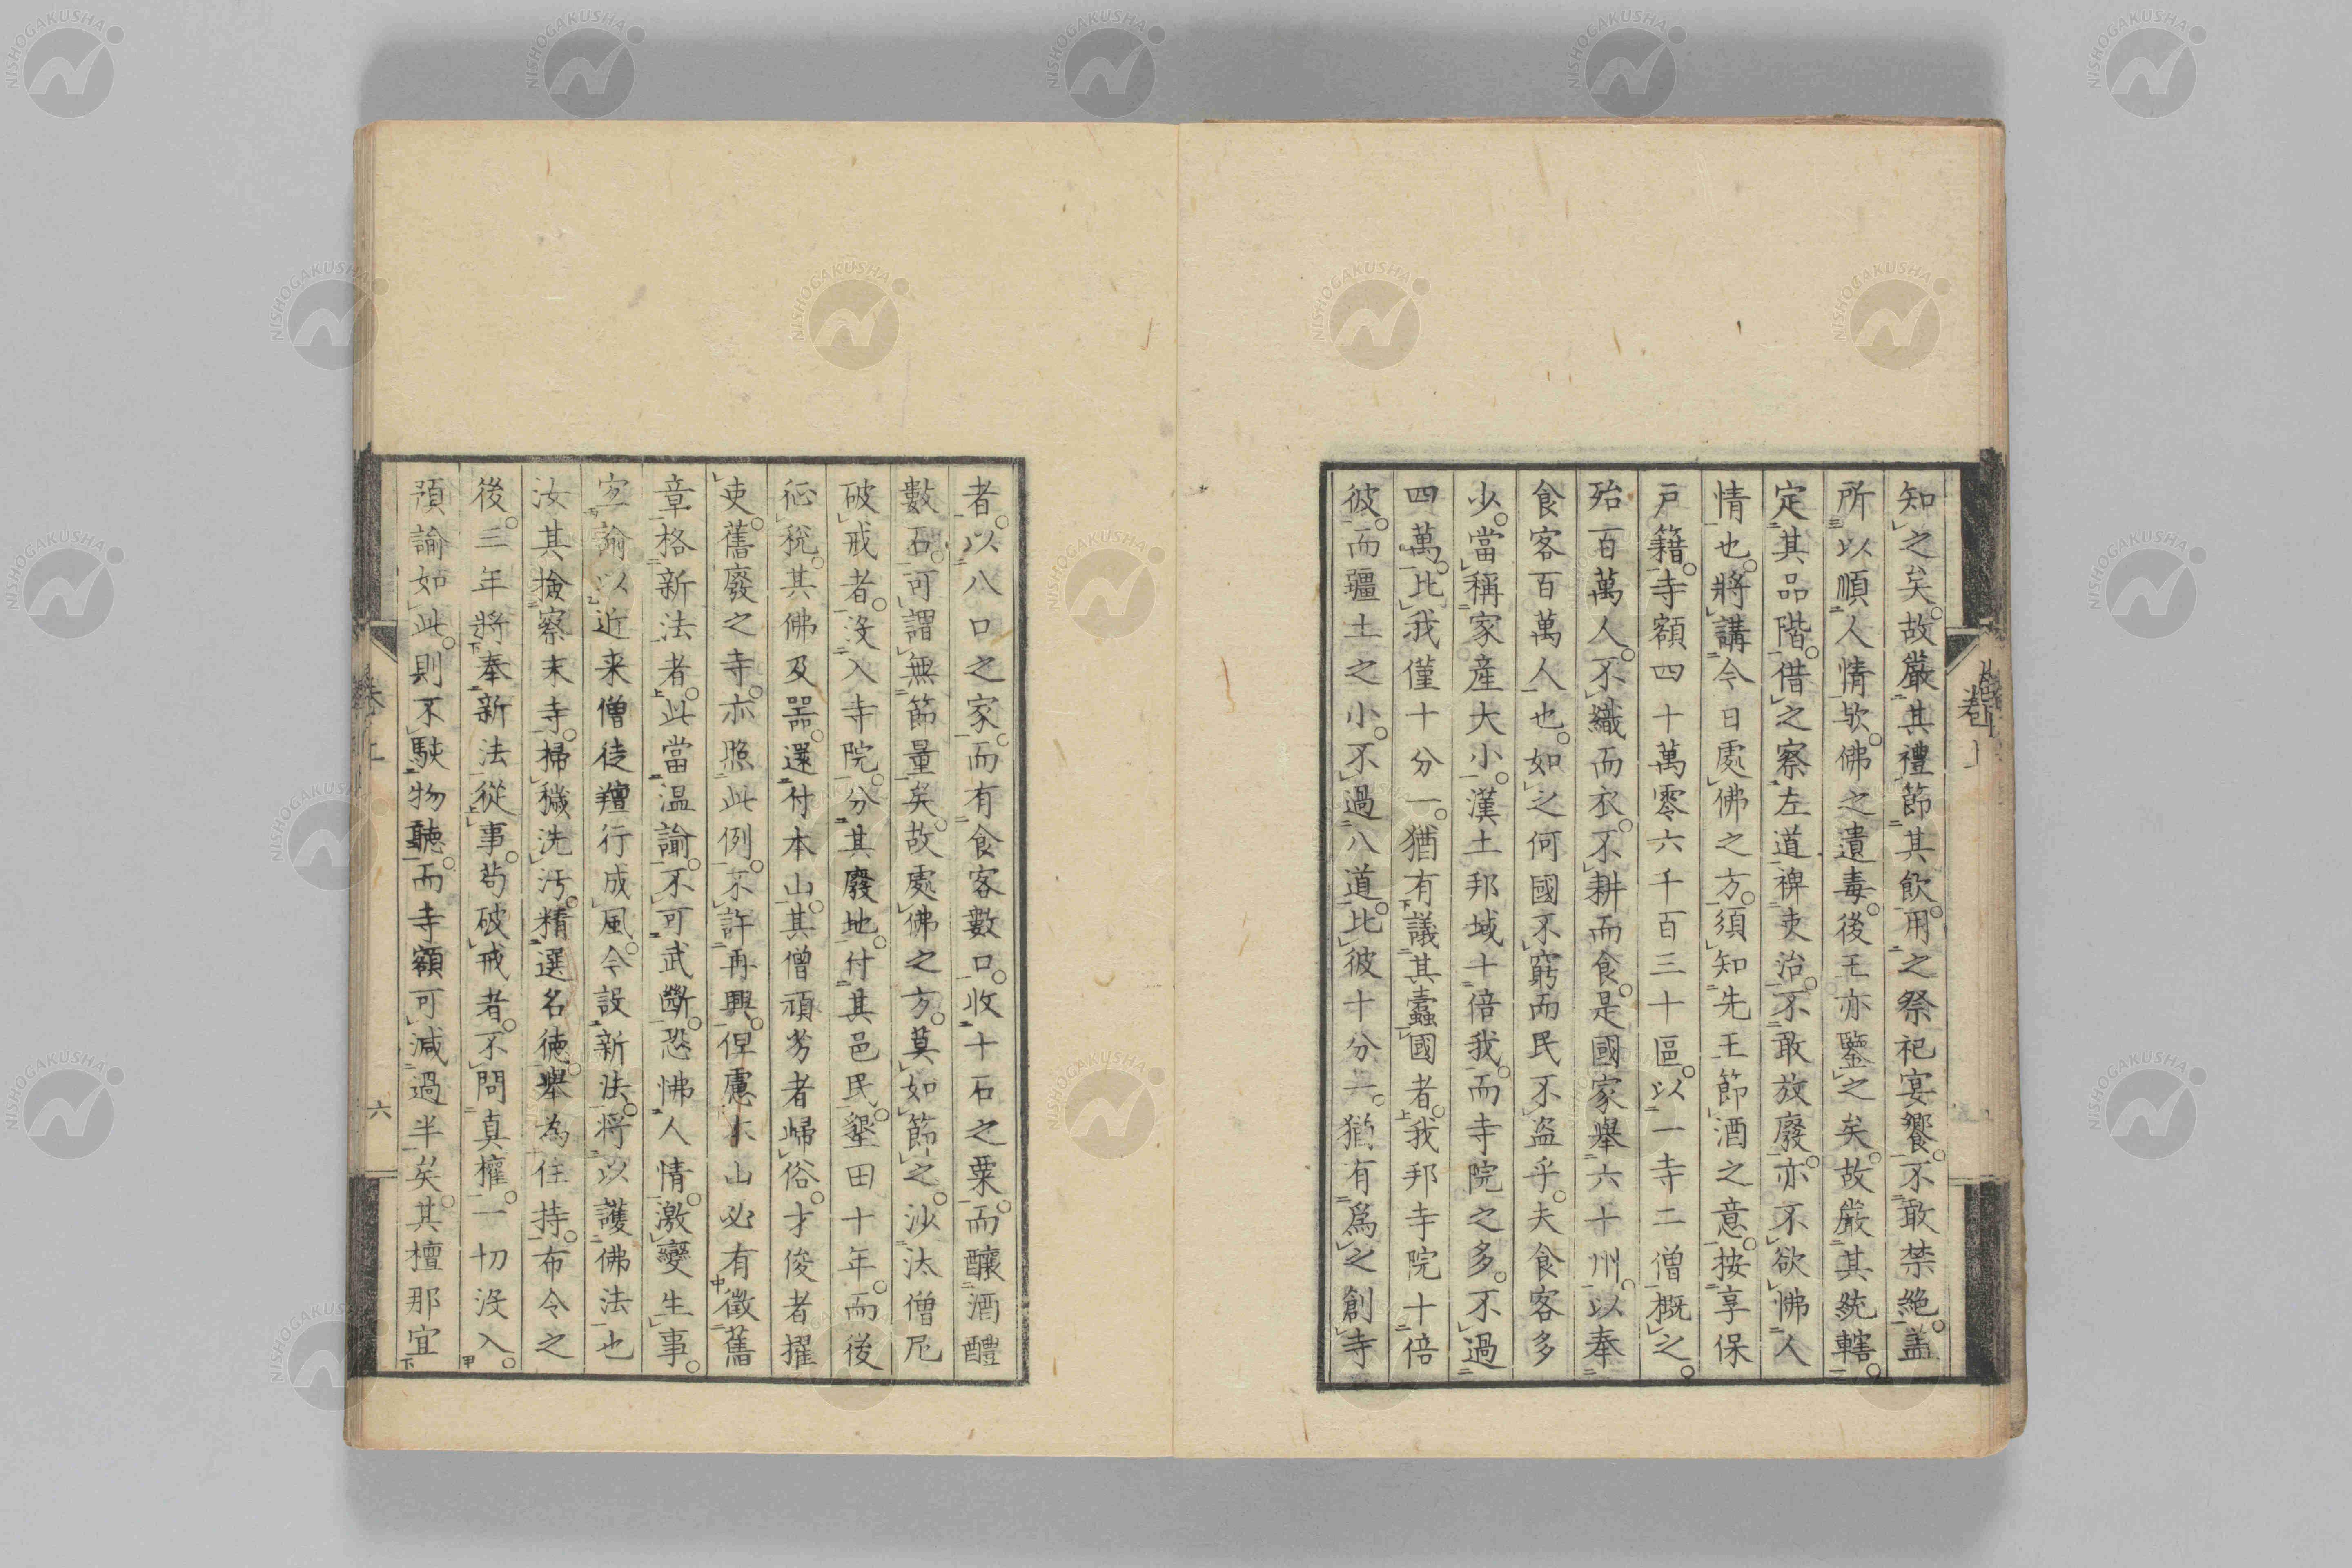 知之矣。故嚴其禮節其飲。用之祭祀宴饗。不敢禁絶。盖
所以順人情歟。佛之遺毒。後王亦鑒之矣。故嚴其統轄。
定其品階。借之察左道裨吏治。不敢放廢。亦不欲怫人
情也。將講今日處佛之方。須知先王節酒之意。按享保
戸籍。寺額四十萬零六千百三十區。以一寺二僧概之。
殆百萬人。不織而衣。不耕而食。是國家舉六十州。以奉
食客百萬人也。如之何國不窮而民不盗乎。夫食客多
少。當稱家産大小。漢土邦域十倍我。而寺院之多。不過
四萬。比我僅十分一。猶有議其蠹國者。我邦寺院十倍
彼。而疆土之小。不過八道。比彼十分一。猶有爲之創寺
者。以八口之家。而有食客數口。收十石之粟。而釀酒醴
數石。可謂無節量矣。故處佛之方。莫如節之。沙汰僧尼
破戒者。沒入寺院。分其廢地。付其邑民。墾田十年。而後
征税。其佛及器。還付本山。其僧頑劣者歸俗。才俊者擢
吏。舊廢之寺。亦照此例。不許再興。但慮本山必有徵舊
章格新法者。此當温諭。不可武斷。恐怫人情。激變生事。
宜諭以近来僧徒羶行成風。今設新法。将以護佛法也
汝其撿察末寺。掃穢洗汚。精選名徳。舉為住持。布令之
後。三年將奉新法從事。苟破戒者。不問真權。一切没入。
預諭如此。則不駭物聴。而寺額可減過半矣。其檀那宜
卷上
六
NISHOGAKUSHA